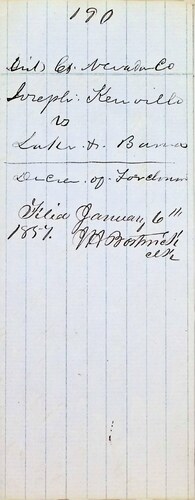 190
Dist Ct. Nevada Co
Joseph Kenville
vs
Luke & Barnes
Decree of Foreclosure
Filed January 6th
1857. J H Bostwick
clk